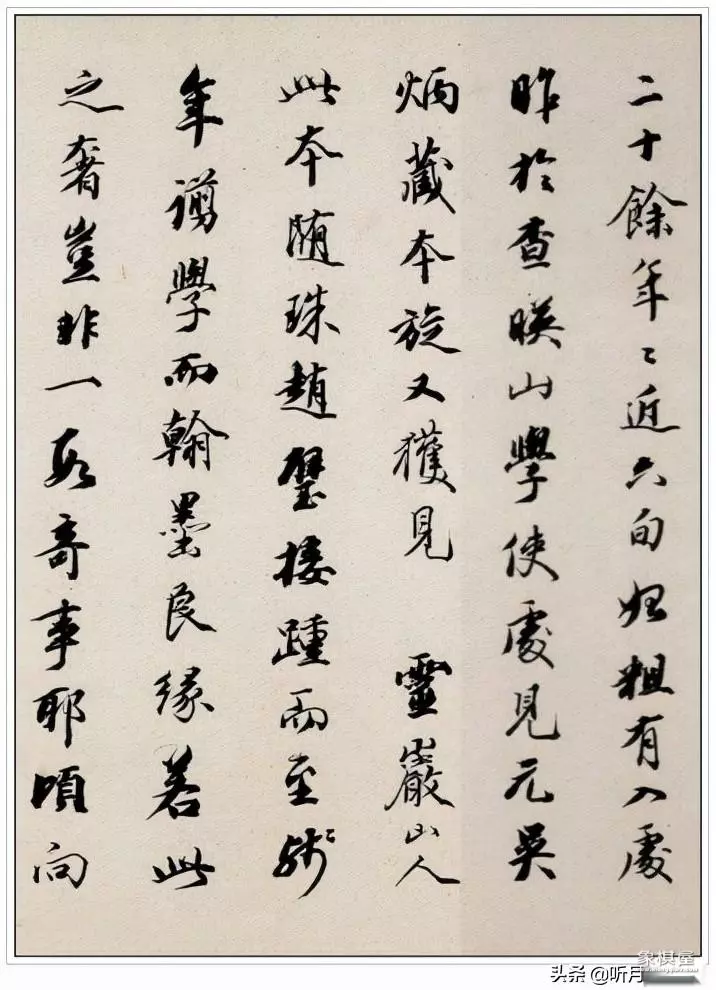 二十餘年〻近六旬始粗有入處
昨於查暎山學使處見元吳
炳藏本旋又獲見 靈巖山人
此本随珠趙璧接踵而至殘
年謭學而翰墨良緣若此
之奢豈非一段奇事耶頃向
象棋屋
头条 @听月